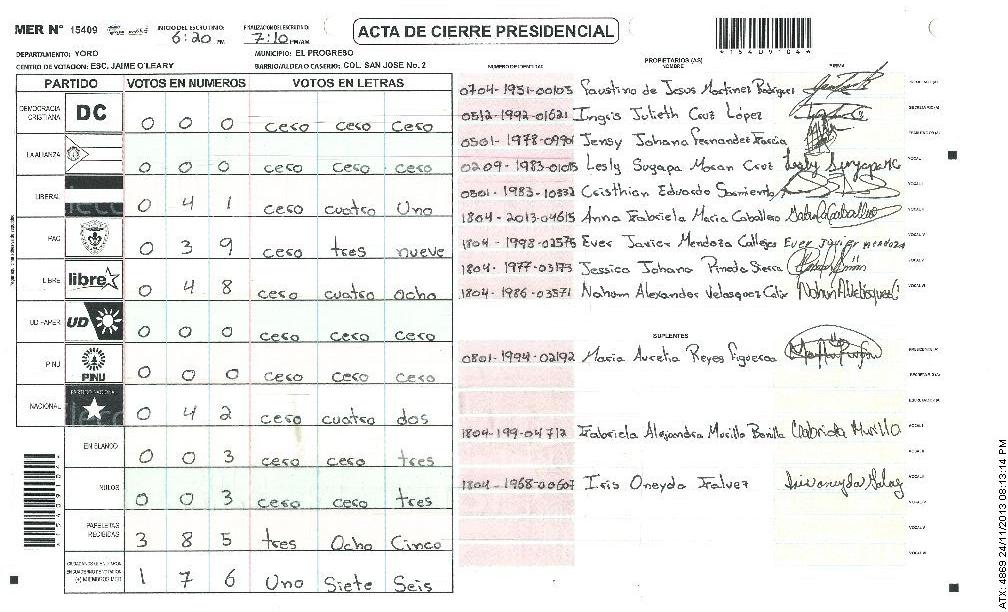 MER N° 15409
INICIO DEL ESCRUTINIO: 6:20 PM
FINALIZACION DEL ESCRUTINIO: 7:10 PM/AM
ACTA DE CIERRE PRESIDENCIAL
*15409104*
DEPARTAMENTO: YORO
MUNICIPIO: EL PROGRESO
CENTRO DE VOTACION: ESC. JAIME O'LEARY
BARRIO/ALDEA O CASERIO: COL. SAN JOSE No. 2
PARTIDO VOTOS EN NUMEROS VOTOS EN LETRAS
DEMOCRACIA CRISTIANA DC 0 0 0 cero cero cero
LA ALIANZA 0 0 0 cero cero cero
LIBERAL 0 4 1 cero cuatro Uno
PAC 0 3 9 cero tres nueve
LIBRE libre 0 4 8 cero cuatro ocho
UD FAPER UD 0 0 0 cero cero cero
PINU PINU 0 0 0 cero cero cero
NACIONAL PARTIDO NACIONAL 0 4 2 cero cuatro dos
EN BLANCO 0 0 3 cero cero tres
NULOS 0 0 3 cero cero tres
PAPELETAS RECIBIDAS 3 8 5 tres Ocho Cinco
1 7 6 Uno Siete Seis
NUMERO DE IDENTIDAD PROPIETARIOS (AS) NOMBRE FIRMA
0704-1951-00105 Faustino de Jesus Martinez Rodriguez
0512-1992-01621 Ingris Julieth Cruz López
0501-1978-09901 Jensy Johana Fernandez Garcia
0209-1983-01015 Lesly Suyapa Moran Cruz Lesly Suyapa MC
0501-1983-10332 Cristhian Eduardo Sarmiento
1804-2013-04615 Anna Gabriela Maria Caballero
1804-1998-02575 Ever Javier Mendoza Callejas Ever Javier Mendoza
1804-1977-03173 Jessica Johana Pineda Sierra
1804-1986-03571 Nahum Alexander Velasquez Calix
SUPLENTES
0801-1994-02192 Maria Aurelia Reyes Figueroa
1804-199-04712 Gabriela Alejandra Murillo Bonilla Gabriela Murillo
1804-1968-00607 Iris Oneyda Galvez
ATX: 4869 24/11/2013 08:13:14 PM